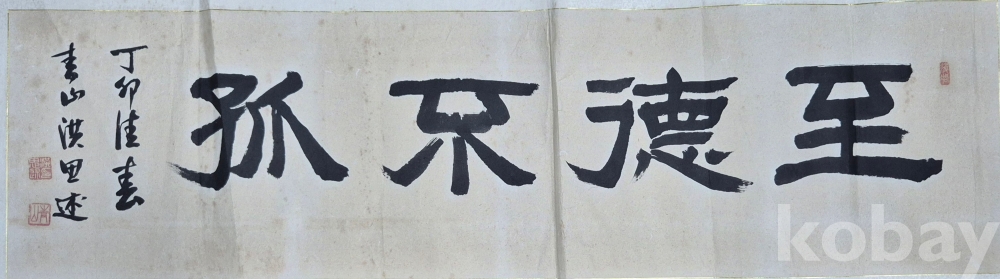 至德不孤
丁卯佳春
靑山洪思述
kobay